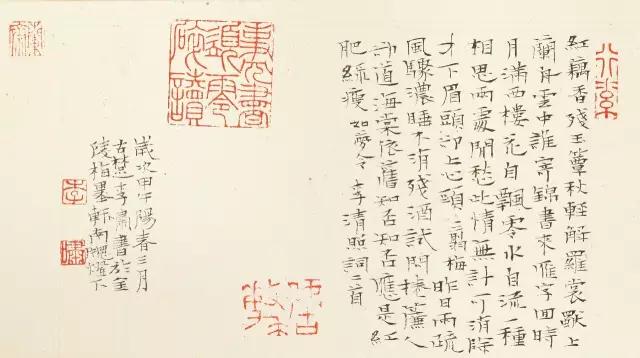 紅藕香殘玉簟秋輕解羅裳獨上
蘭舟雲中誰寄錦書來雁字回時
月滿西樓花自飄零水自流一種
相思兩處閒愁此情無計可消除
才下眉頭卻上心頭一翦梅昨日雨疏
風驟濃睡不消殘酒試問捲簾人
卻道海棠依舊知否知否應是紅
肥綠瘦如夢令李清照詞二首
歲次甲午陽春三月
古楚李肅書於金
陵楷墨軒南窗燈下
李